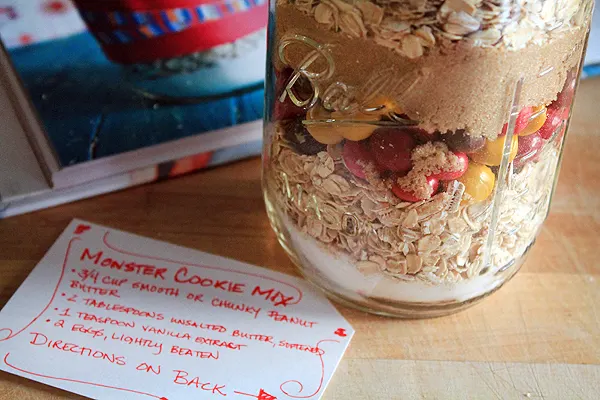 Ball
MONSTER COOKIE MIX
• 3/4 CUP SMOOTH OR CHUNKY PEANUT
BUTTER
• 2 TABLESPOONS UNSALTED BUTTER, SOFTENED
• 1 TEASPOON VANILLA EXTRACT
• 2 EGGS, LIGHTLY BEATEN
DIRECTIONS ON BACK